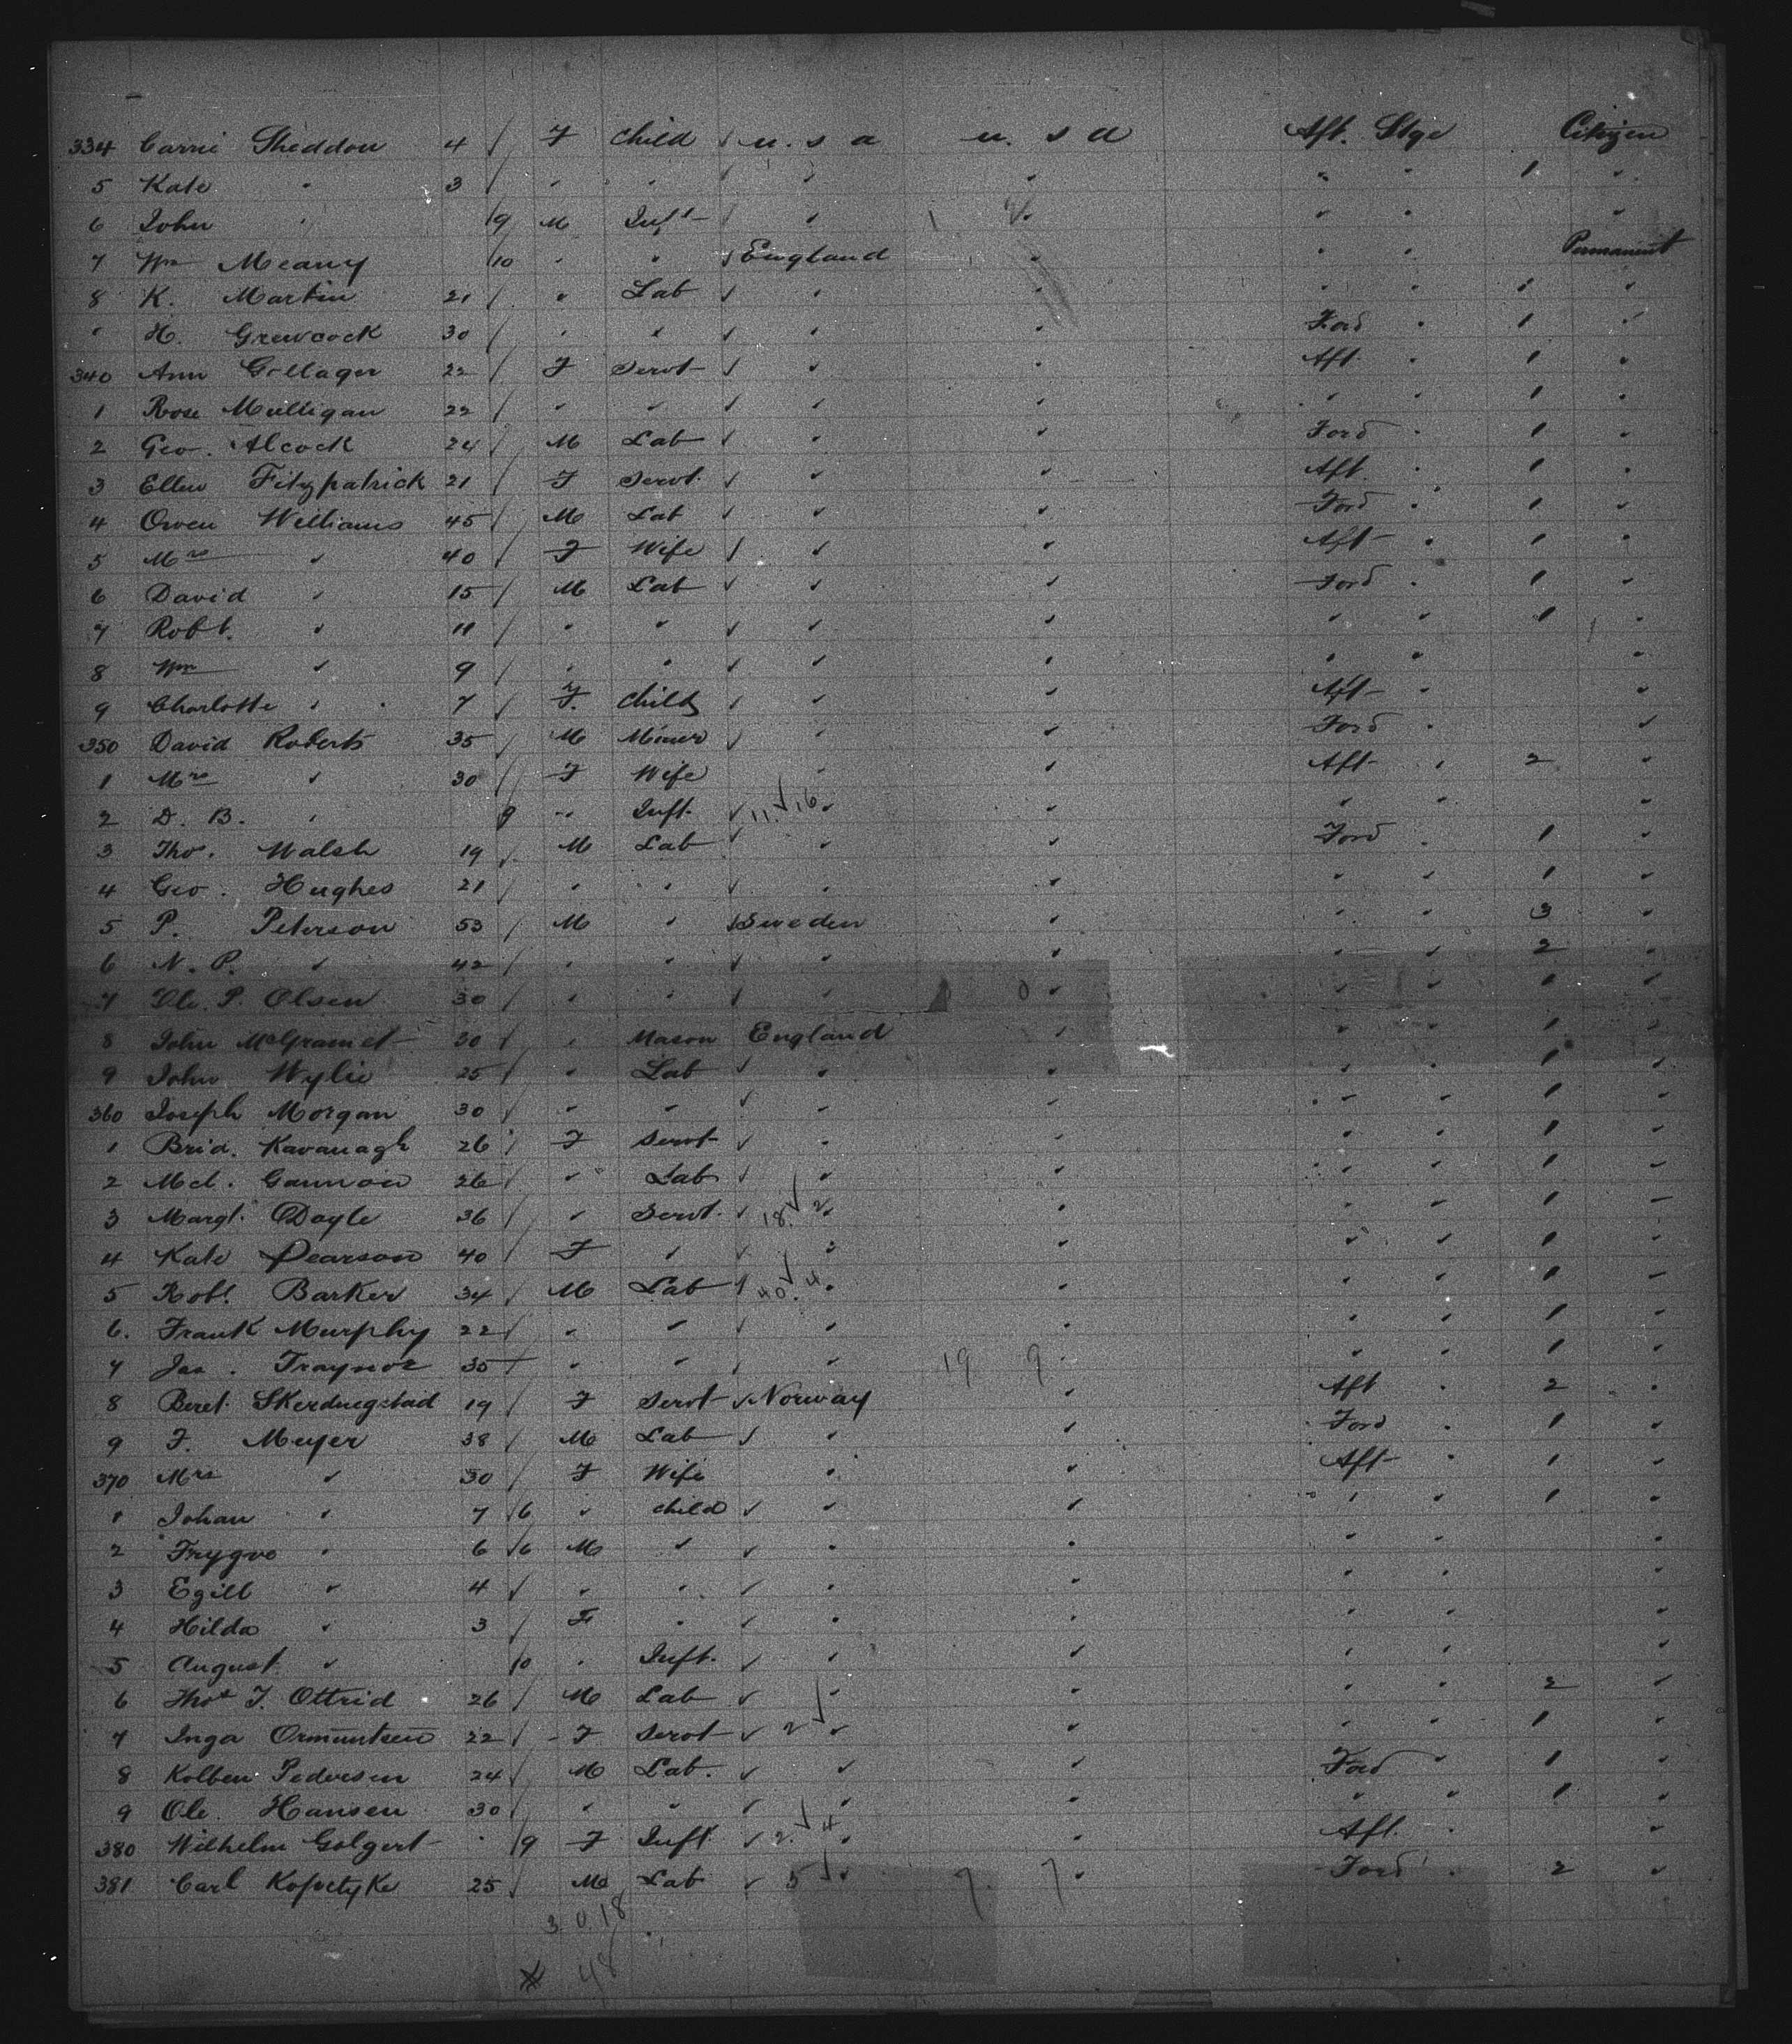 334 Carrie Sheddon 4 / F Child ✓ u. s a u. s a Aft. Stge Citizen
5 Kate " 3 / " " ✓ " " " " 1 "
6 John " /9 M Inft / " " " " "
7 Wm Meany /10 " " ✓ England " " " Permanent
8 K. Martin 21 / " Lab ✓ " " " " 1 "
" H. Grewcock 30 / " " ✓ " " Ford " 1 "
340 Ann Gollager 22 / F Servt ✓ " " Aft. " 1 "
1 Rose Mulligan 22 / " " ✓ " " " " 1 "
2 Geo. Alcock 24 / M Lab ✓ " " Ford " 1 "
3 Ellen Fitzpatrick 21 / F Servt. ✓ " " Aft. " 1 "
4 Owen Williams 45 / M Lab ✓ " " Ford " 1 "
5 Mrs " 40 / F Wife / " " Aft " 1 "
6 David " 15 / M Lab ✓ " " Ford " 1 "
7 Robt. " 11 / " " ✓ " " " " 1 "
8 Wm " 9 / " " ✓ " " " " "
9 Charlotte " 7 / F. Child ✓ " " Aft " "
350 David Roberts 35 / M Miner ✓ " " Ford " "
1 Mrs " 30 / F Wife " " Aft " 2 "
2 D. B. " 9 " Inft. ✓ 11 ✓ 16 " " " " "
3 Thos. Walsh 19 / M Lab ✓ " " Ford " 1 "
4 Geo. Hughes 21 / " " ✓ " " " " 1 "
5 P. Peterson 53 / M " ✓ Sweden " " " 3 "
6 N. P. " 42 / " " ✓ " " " " 2 "
7 Ole. P. Olsen 30 / " " ✓ " 0 " " " 1 "
8 John 30 / " Mason England " " " 1 "
9 John Wylie 25 / " Lab ✓ " " " " 1 "
360 Joseph Morgan 30 / " " ✓ " " " " 1 "
1 Brid. Kavanagh 26 / F Servt ✓ " " " " 1 "
2 Mcl. Gannon 26 / " Lab ✓ " " " " 1 "
3 Margt. Doyle 36 / " Servt. ✓ 18 ✓ 2 " " " " 1 "
4 Kate Pearson 40 / F " ✓ " " " " 1 "
5 Robt. Barker 34 / M Lab ✓ 40 ✓ 4 " " " " 1 "
6. Frank Murphy 22 / " " ✓ " " " " 1 "
7 Jas. Traynor 35 / " " ✓ " 19 9 " " " 1 "
8 Beret. Skerdnegstad 19 / F Servt ✓ Norway " Aft " 2 "
9 F. Meyer 38 / M Lab ✓ " " Ford " 1 "
370 Mrs " 30 / F Wife " " Aft " 1 "
1 Johan " 7 /6 " child ✓ " " " " 1 "
2 Trygve " 6 /6 M " ✓ " " " " "
3 Egill " 4 ✓ " " ✓ " " " " "
4 Hilda " 3 / F " ✓ " " " " "
5 August " /10 " Inft. ✓ " " " " "
6 Thos T. Ottrid 26 / M Lab ✓ " " " " 2 "
7 Inga Ormuntsen 22 / F Servt ✓ 2 ✓ " " " " 1 "
8 Kolben Pedersen 24 / M Lab. ✓ " " Ford " 1 "
9 Ole. Hansen 30 / " " ✓ " " " " 1 "
380 Wilhelm Golgert /9 F Inft ✓ 2 ✓ 4 " " Aft. "
381 Carl 25 / M Lab ✓ 5 ✓ " 7. 7 " Ford " 2 "
3 0 18
48